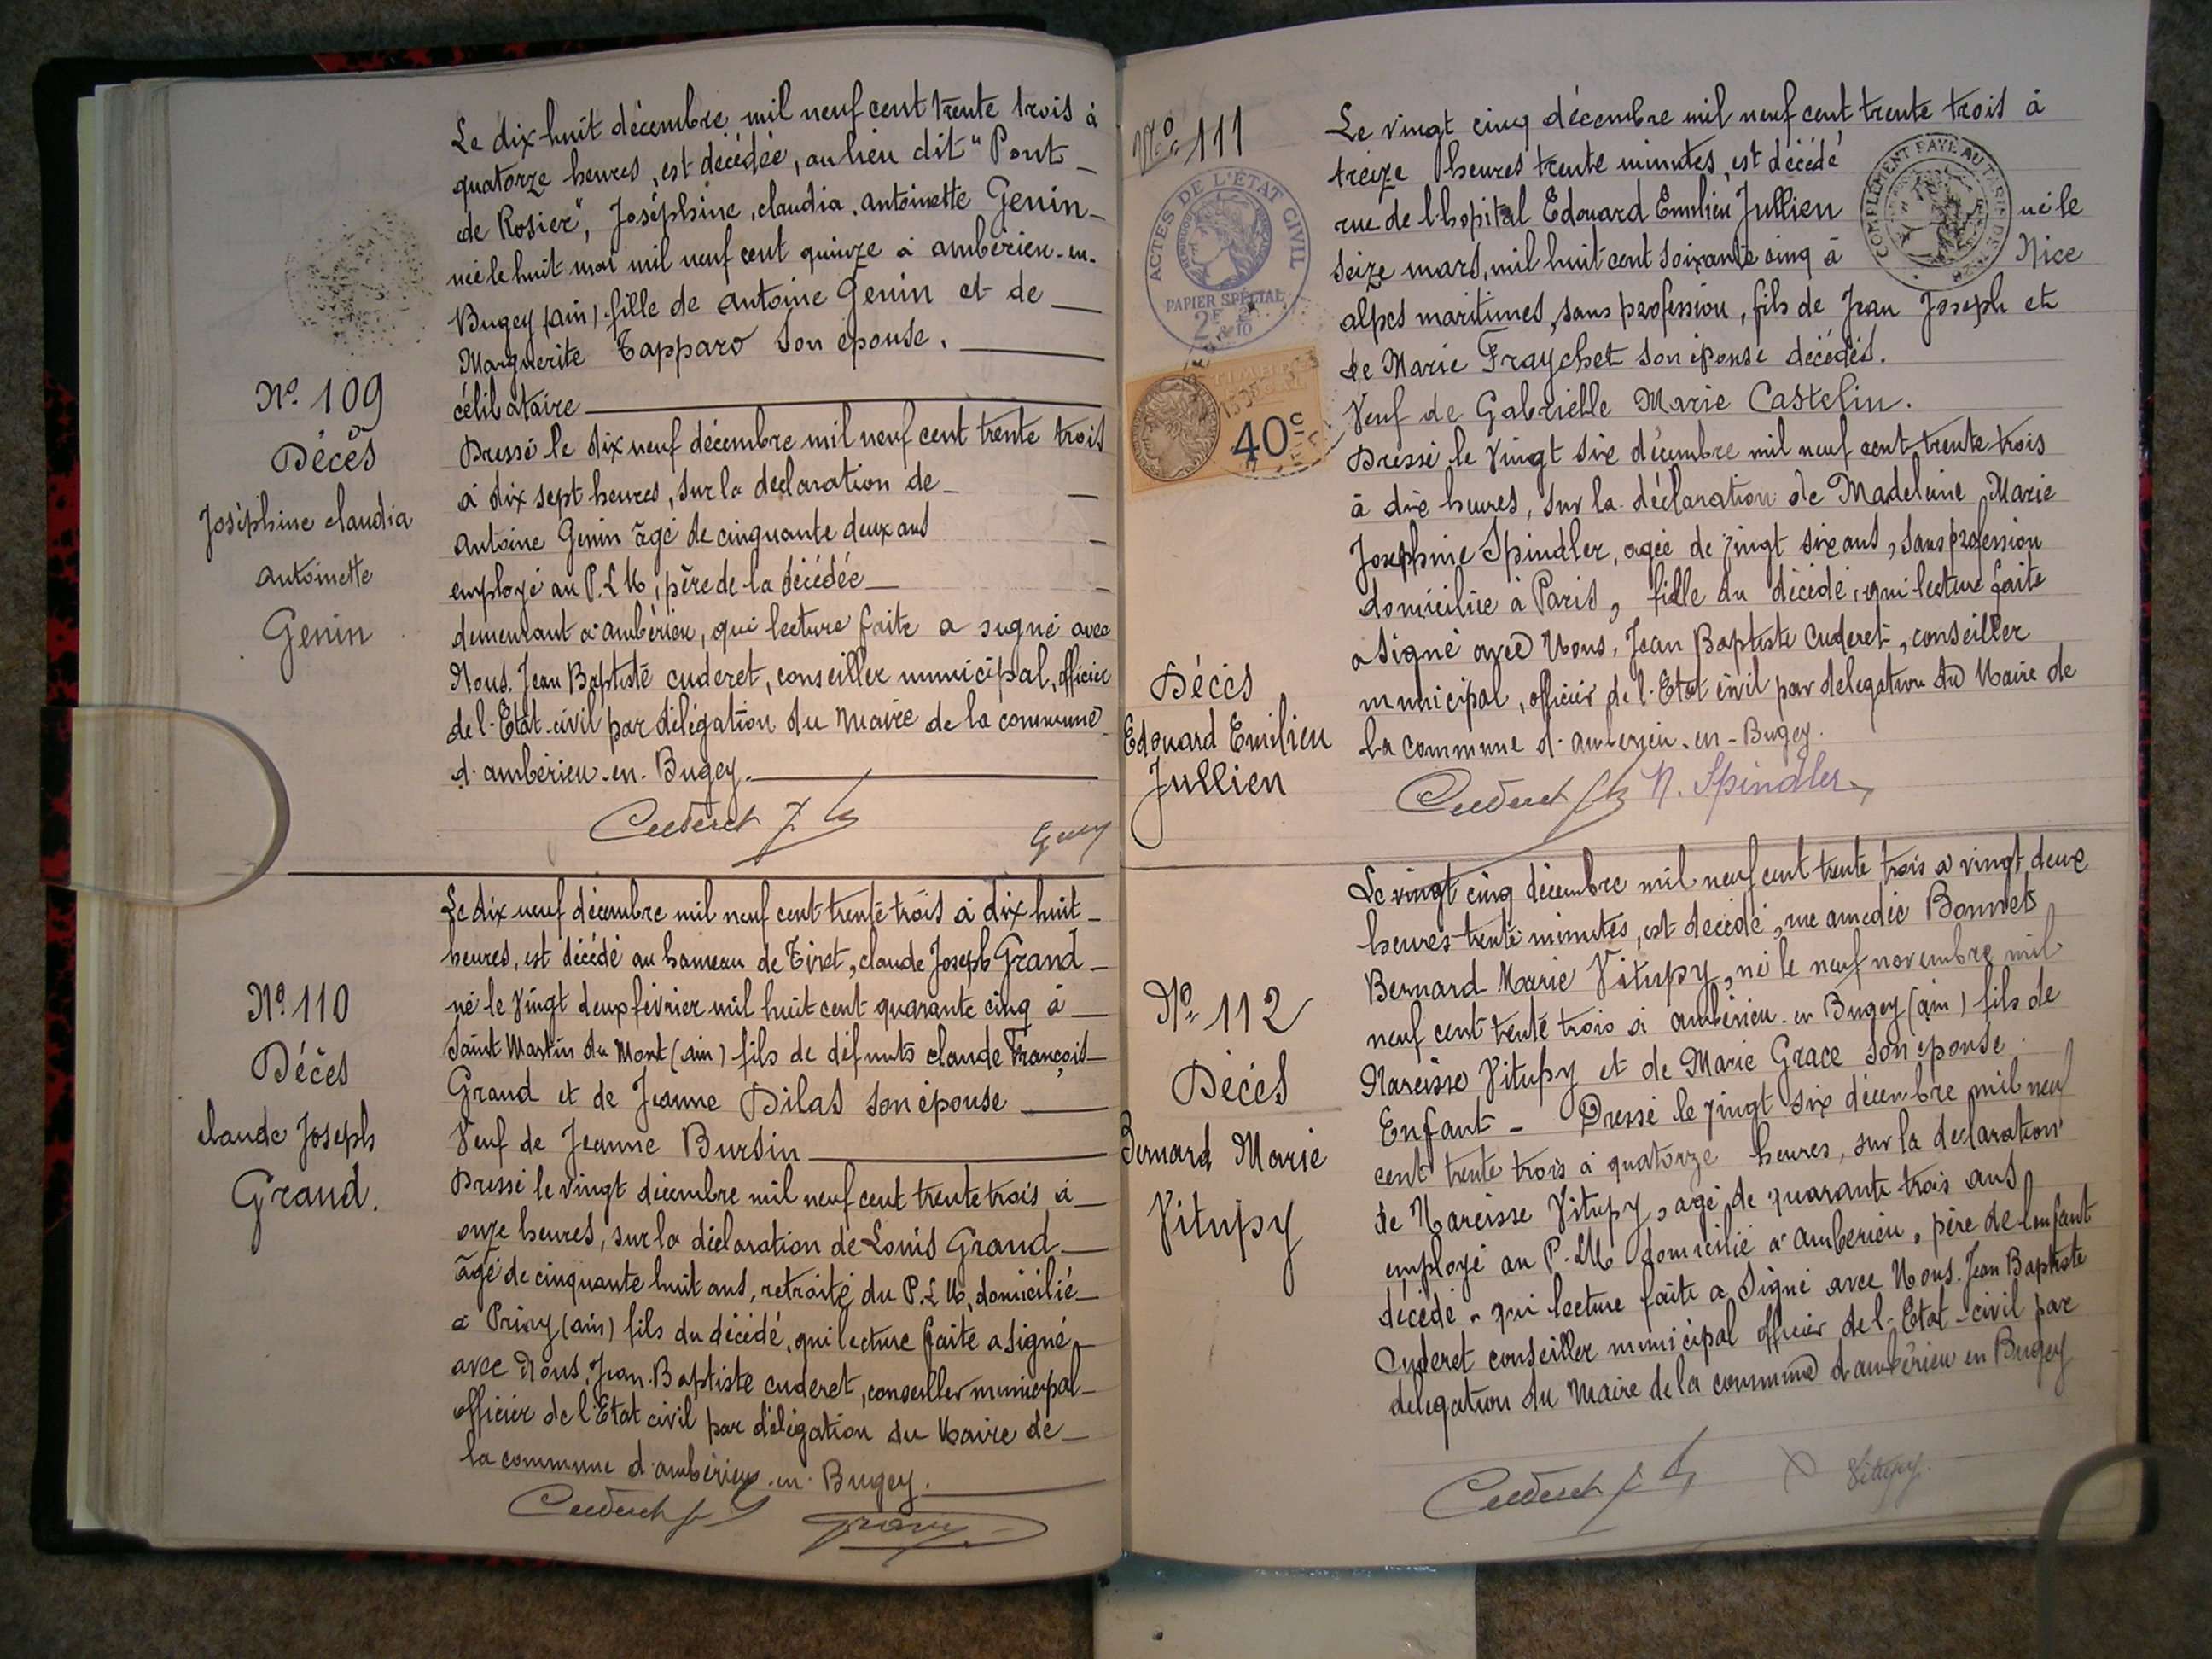 Le dix-huit décembre mil neuf cent trente trois à
quatorze heures, est décédée, au lieu dit "Pont-
de Rosier", Joséphine, claudia, antoinette Genin-
née le huit mai mil neuf cent quinze à ambérieu-en-
Bugey (ain) fille de antoine Genin et de
Marguerite Tapparo son épouse.
célibataire
Dressé le dix neuf décembre mil neuf cent trente trois
à dix sept heures, sur la déclaration de
antoine Genin âgé de cinquante deux ans
employé au P.L.M, père de la décédée
demeurant à ambérieu, qui lecture faite a signé avec
Nous. Jean Baptiste cuderet, conseiller municipal, officier
de l'Etat-civil par délégation du Maire de la commune
d'ambérieu-en-Bugey.
Cuderet
N° 109
Décès
Joséphine claudia
antoinette
Genin
Le dix neuf décembre mil neuf cent trente trois à dix huit
heures, est décédé au hameau de Tiret, claude Joseph Grand
né le vingt deux février mil huit cent quarante cinq à
Saint Martin du Mont (ain) fils de défunts claude François
Grand et de Jeanne Dilas son épouse
Veuf de Jeanne Burdin
Dressé le vingt décembre mil neuf cent trente trois à
onze heures, sur la déclaration de Louis Grand
âgé de cinquante huit ans, retraité du P.L.M, domicilié
à Priay (ain) fils du décédé, qui lecture faite a signé
avec Nous, Jean-Baptiste cuderet, conseiller municipal
officier de l'Etat civil par délégation du Maire de
la commune d'ambérieu-en-Bugey.
Cuderet
N° 110
Décès
claude Joseph
Grand.
N° 111
ACTES DE L'ETAT CIVIL
PAPIER SPÉCIAL
40c
COMPLÉMENT PAYÉ AU TARIF DE
Le vingt cinq décembre mil neuf cent trente trois à
treize heures trente minutes, est décédé
rue de l'hopital Edouard Emilien Jullien né le
seize mars, mil huit cent soixante cinq à Nice
alpes maritimes, sans profession, fils de Jean Joseph et
de Marie Fraychet son épouse décédés.
Veuf de Gabrielle Marie Castelin.
Dressé le vingt six décembre mil neuf cent trente trois
à dix heures, sur la déclaration de Madeleine Marie
Josephine Spindler, agée de vingt six ans, sans profession
domiciliée à Paris, fille du décédé, qui lecture faite
a signé avec Nous, Jean Baptiste Cuderet, conseiller
municipal, officier de l'Etat civil par delegation du Maire de
la commune d'ambérieu-en-Bugey.
Cuderet N. Spindler
Décès
Edouard Emilien
Jullien
Le vingt cinq décembre mil neuf cent trente trois à vingt deux
heures trente minutes, est décédé, rue amédée Bonnet
Bernard Marie Vitupy, né le neuf novembre mil
neuf cent trente trois à ambérieu-en Bugey (ain) fils de
Narcisse Vitupy et de Marie Grace son épouse.
Enfant - Dressé le vingt six décembre mil neuf
cent trente trois à quatorze heures, sur la déclaration
de Narcisse Vitupy, agé de quarante trois ans
employé au P.L.M domicilié à Ambérieu, père de l'enfant
décédé - qui lecture faite a signé avec Nous. Jean Baptiste
Cuderet conseiller municipal officier de l'Etat-civil par
délégation du Maire de la commune d'ambérieu en Bugey
Cuderet Vitupy
N° 112
Décès
Bernard Marie
Vitupy